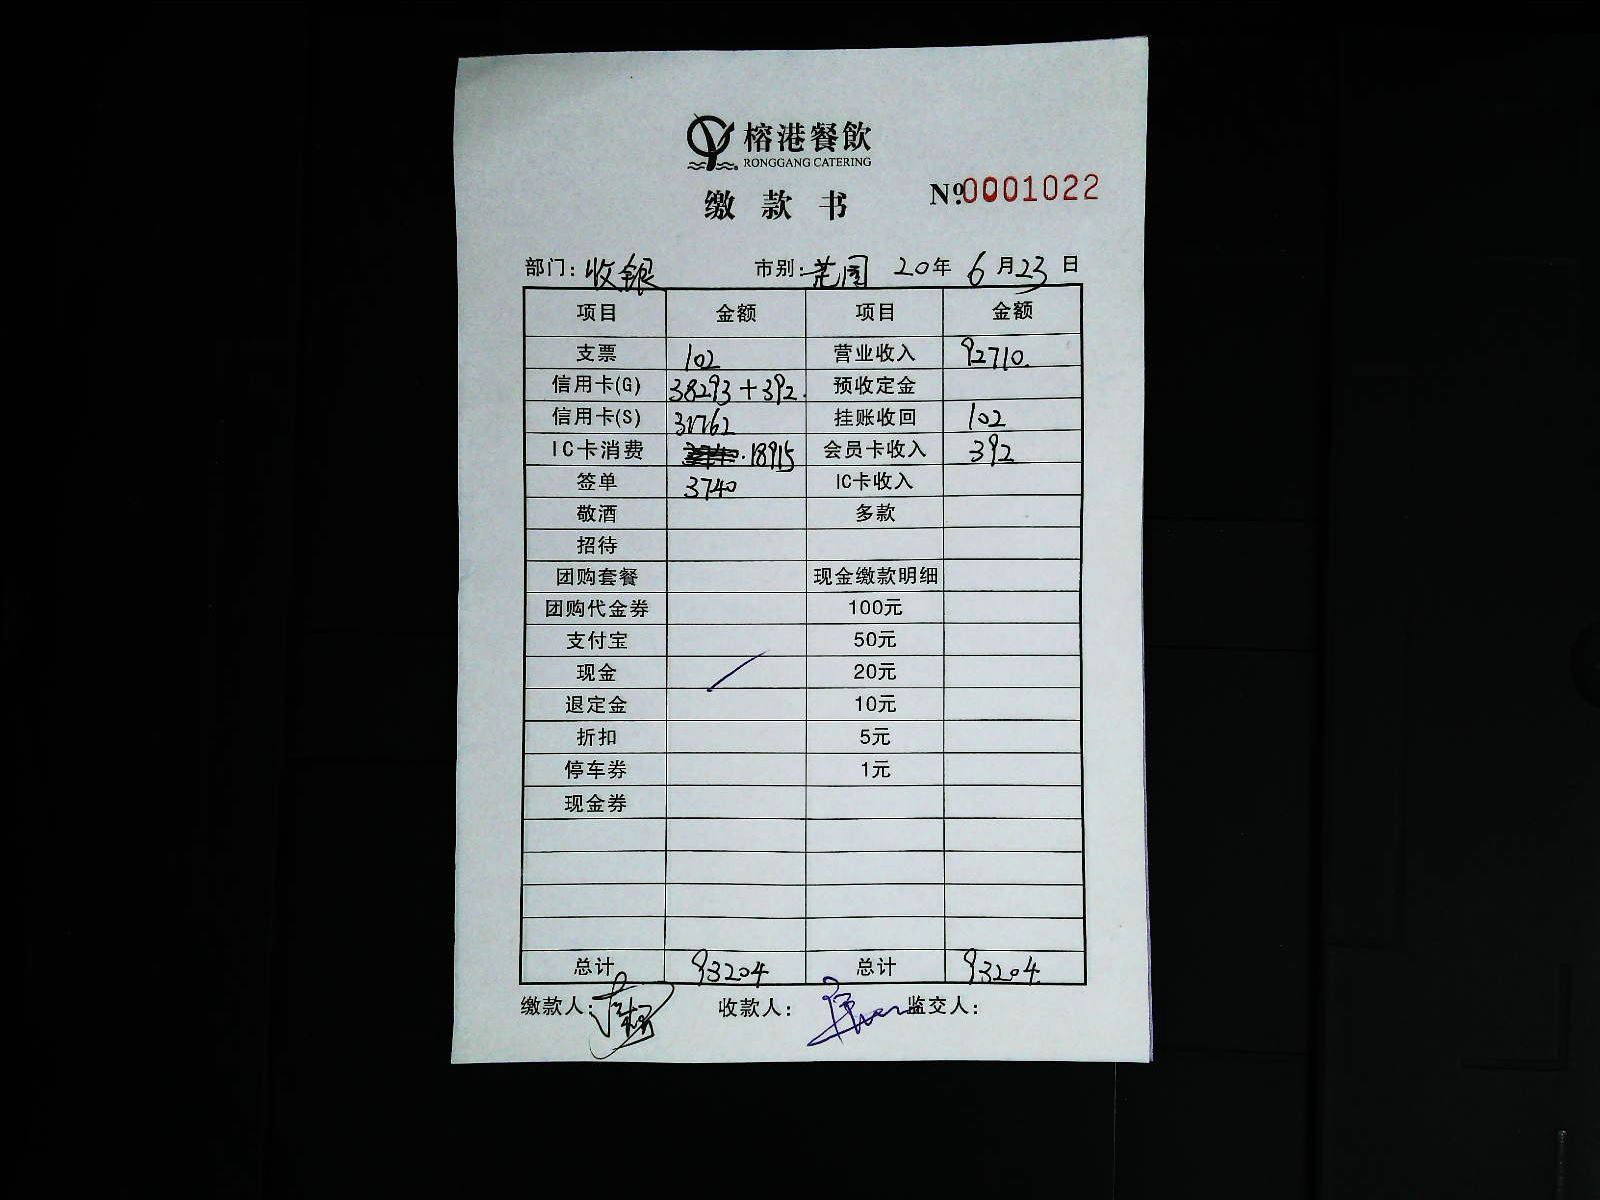 榕港餐飲
RONGGANG CATERING
缴款书 №0001022
部门：收银 市别：花园 20年6月23日
项目 金额 项目 金额
支票 102 营业收入 92710.
信用卡(G) 38293+392. 预收定金
信用卡(S) 31762 挂账收回 102
IC卡消费 18915 会员卡收入 392
签单 3740 IC卡收入
敬酒 多款
招待
团购套餐 现金缴款明细
团购代金券 100元
支付宝 50元
现金 20元
退定金 10元
折扣 5元
停车券 1元
现金券
总计 93204 总计 93204.
缴款人： 收款人： 监交人：